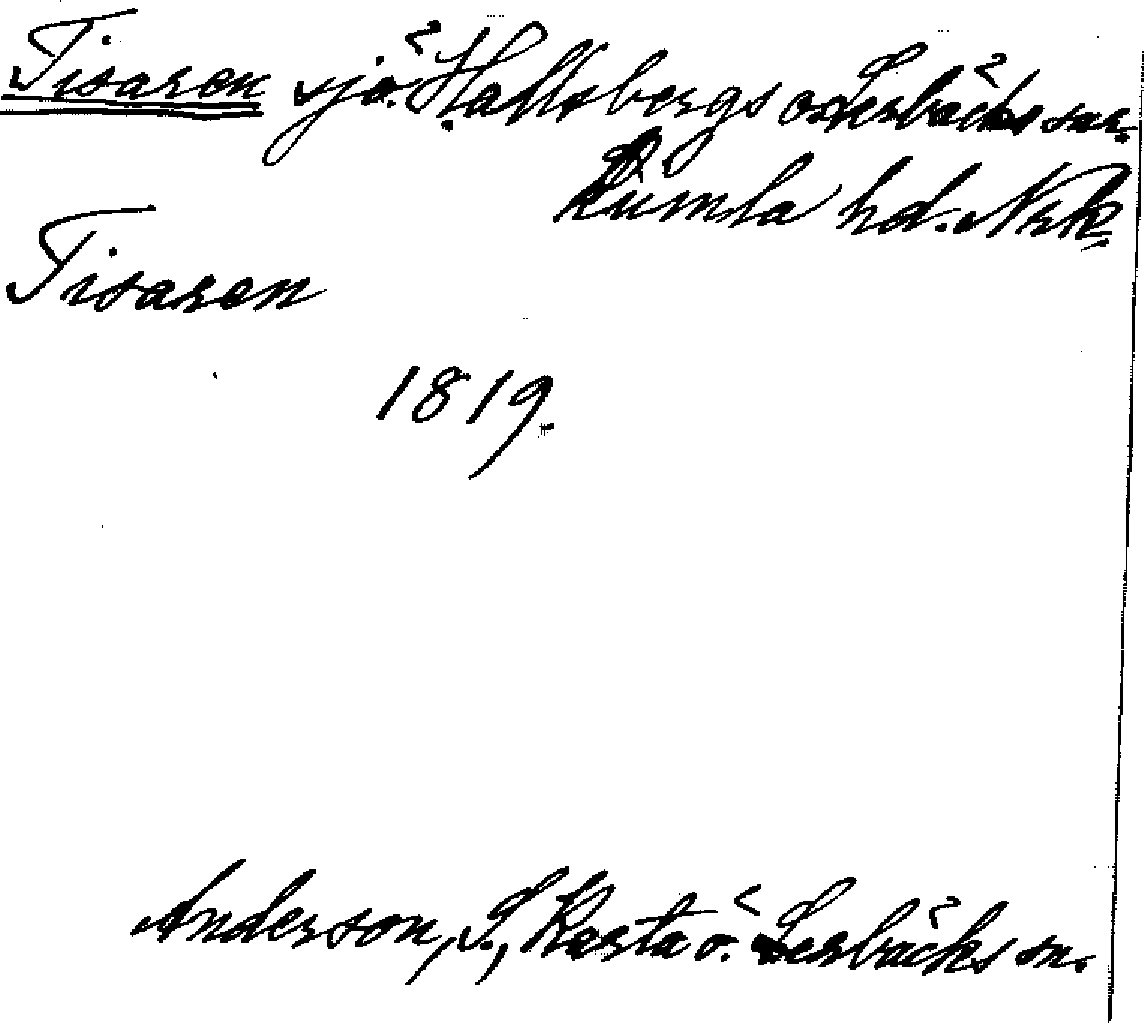 Tisaren sjö. Hallsbergs o Lerbäcks snr.
Kumla hd. Nrk.
Tisaren
1819.
Anderson, S., Karta ö. Lerbäcks sn.